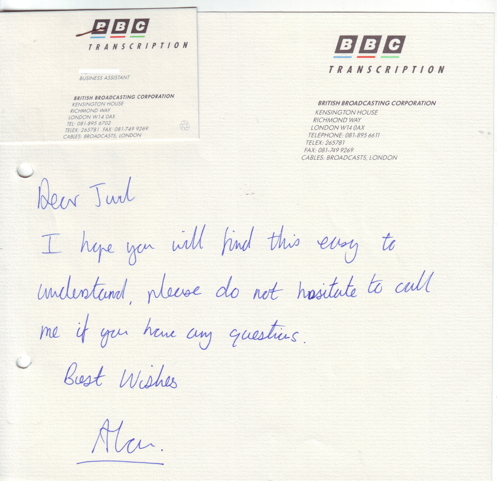 BBC
TRANSCRIPTION
BUSINESS ASSISTANT
BRITISH BROADCASTING CORPORATION
KENSINGTON HOUSE
RICHMOND WAY
LONDON W14 0AX
TEL: 081-895 6702
TELEX: 265781 FAX: 081-749 9269
CABLES: BROADCASTS, LONDON
BBC
TRANSCRIPTION
BRITISH BROADCASTING CORPORATION
KENSINGTON HOUSE
RICHMOND WAY
LONDON W14 0AX
TELEPHONE: 081-895 6611
TELEX: 265781
FAX: 081-749 9269
CABLES: BROADCASTS, LONDON
Dear
I hope you will find this easy to
understand, please do not hesitate to call
me if you have any questions.
Best Wishes
Alan.